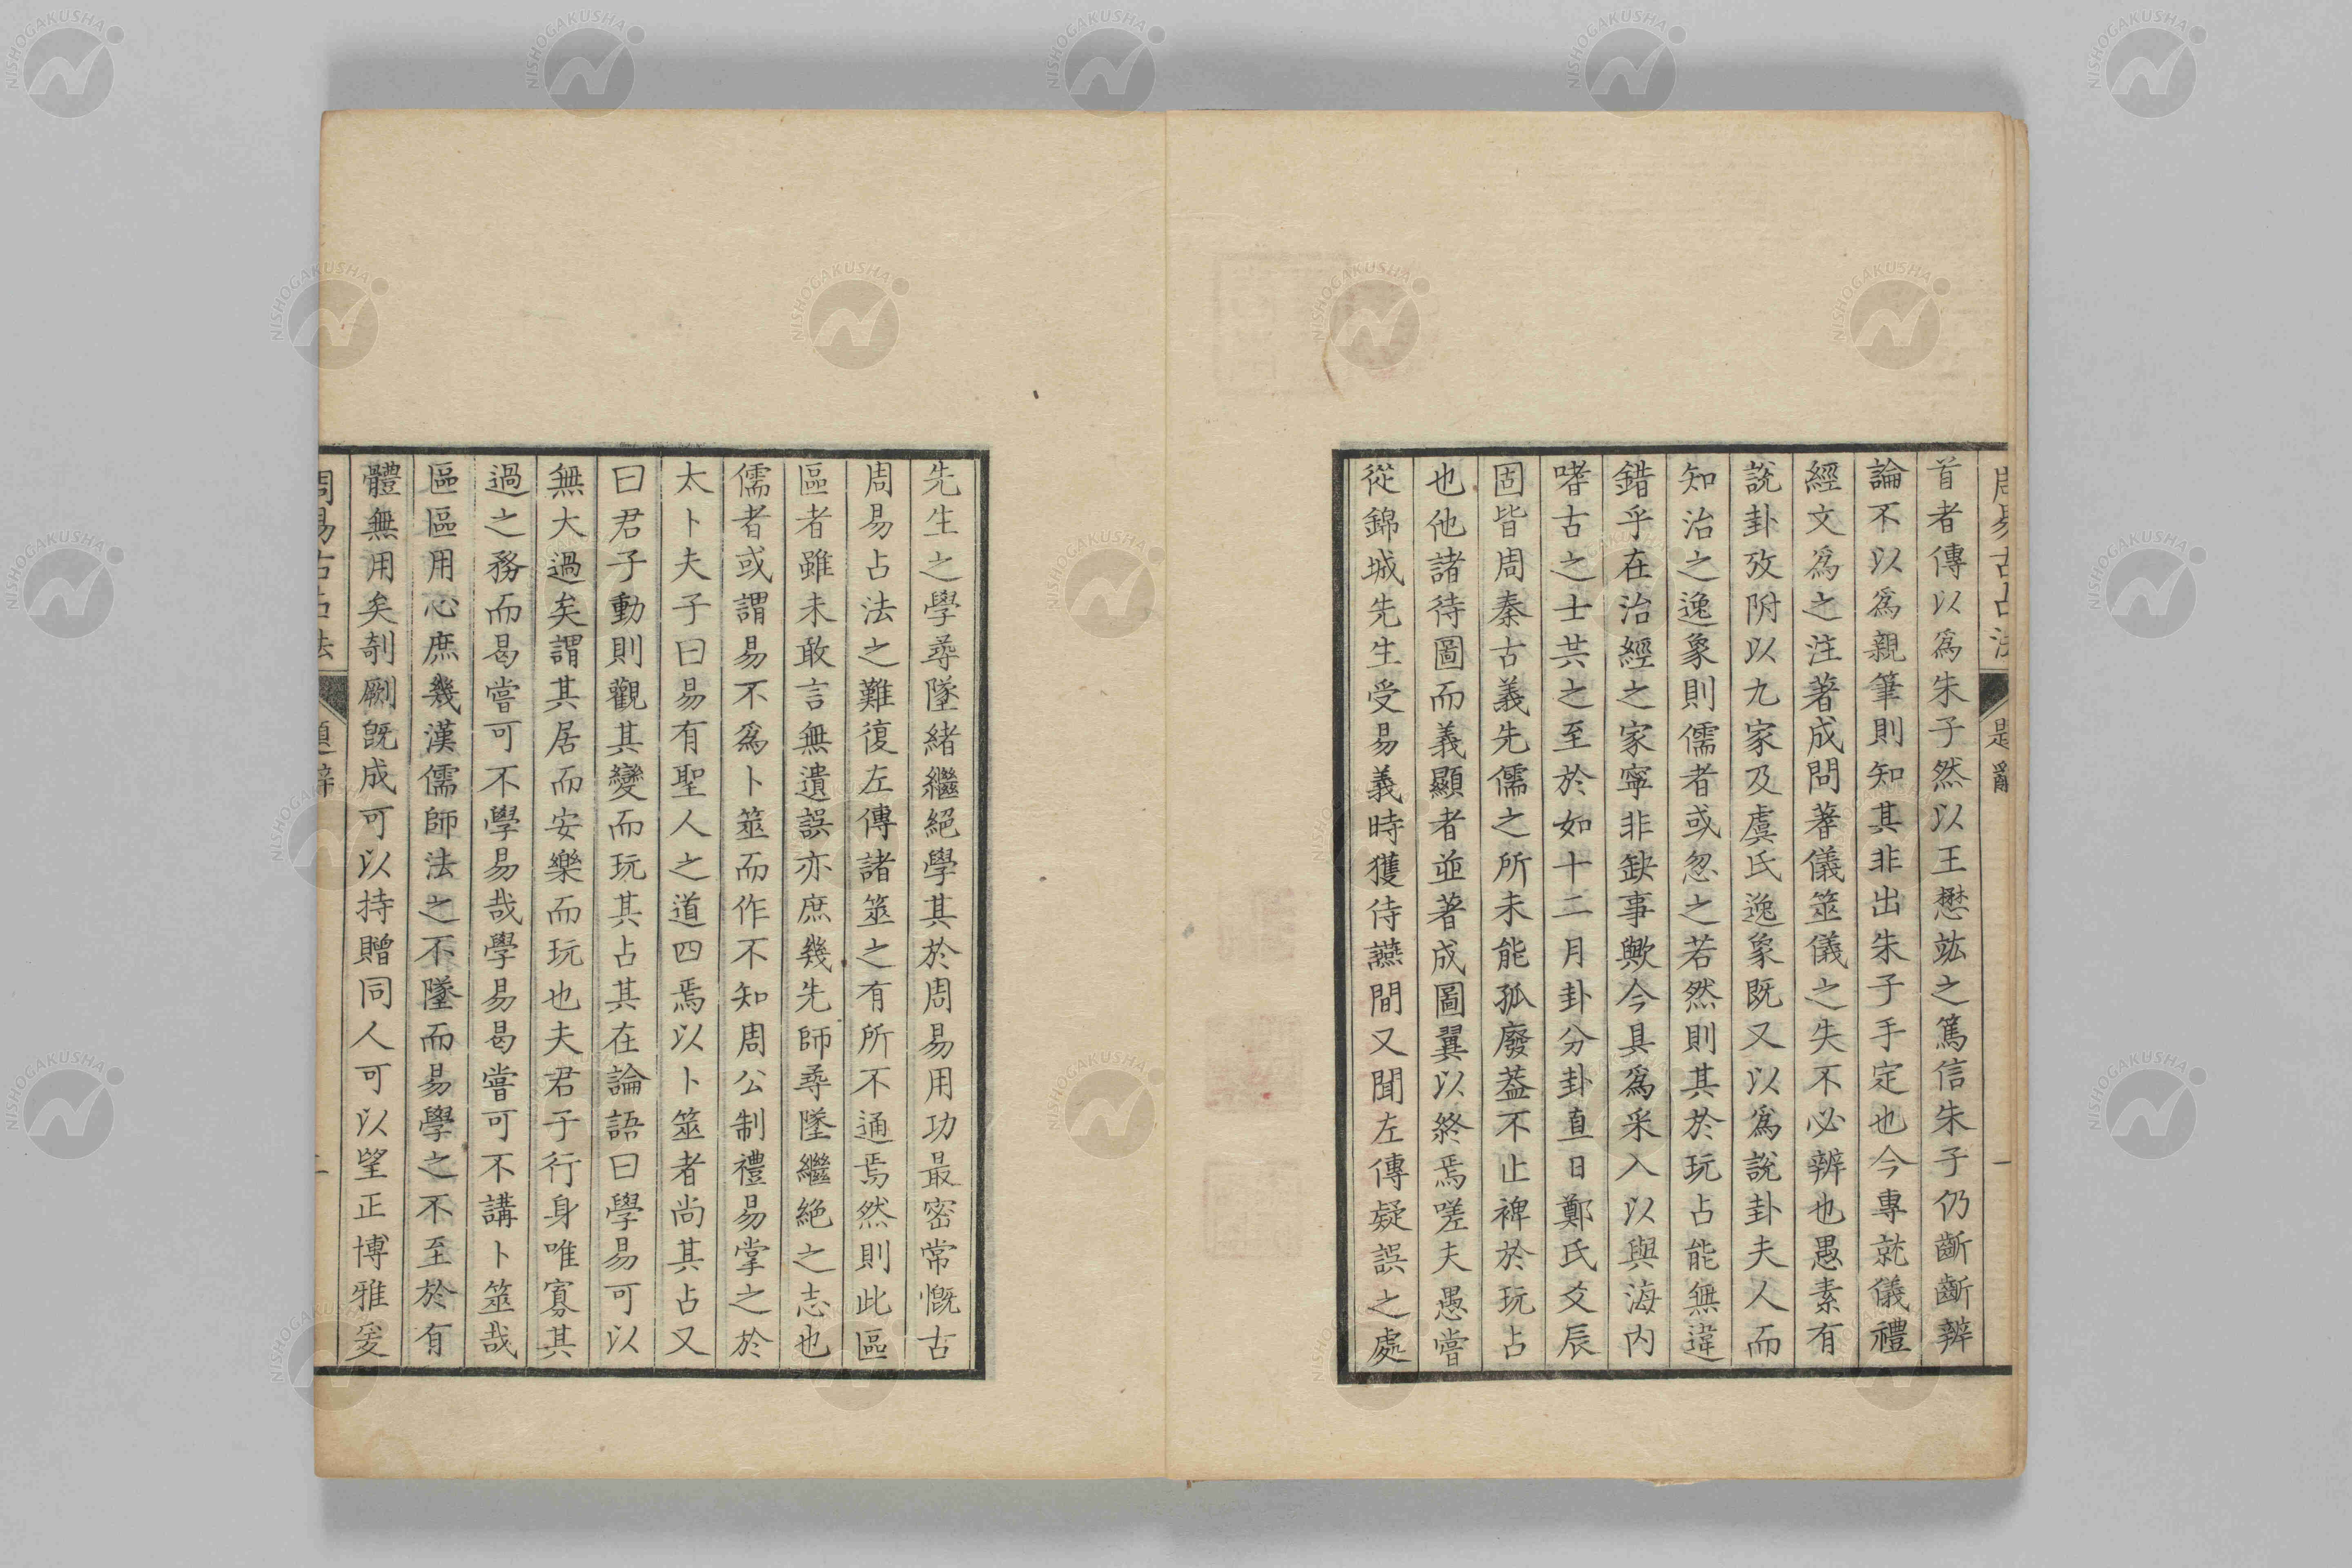 周易古占法 題辭 一
首者傳以爲朱子然以王懋竑之篤信朱子仍齗齗辨
論不以爲親筆則知其非出朱子手定也今專就儀禮
經文爲之注著成問蓍儀筮儀之失不必辨也愚素有
說卦攷附以九家及虞氏逸象既又以爲說卦夫人而
知治之逸象則儒者或忽之若然則其於玩占能無違
錯乎在治經之家寧非缺事歟今具爲采入以與海内
嗜古之士共之至於如十二月卦分卦直日鄭氏爻辰
固皆周秦古義先儒之所未能孤廢葢不止裨於玩占
也他諸待圖而義顯者並著成圖翼以終焉嗟夫愚嘗
從錦城先生受易義時獲侍讌間又聞左傳疑誤之處
先生之學尋墜緒繼絕學其於周易用功最密常慨古
周易占法之難復左傳諸筮之有所不通焉然則此區
區者雖未敢言無遺誤亦庶幾先師尋墜繼絕之志也
儒者或謂易不爲卜筮而作不知周公制禮易掌之於
太卜夫子曰易有聖人之道四焉以卜筮者尚其占又
曰君子動則觀其變而玩其占其在論語曰學易可以
無大過矣謂其居而安樂而玩也夫君子行身唯寡其
過之務而曷嘗可不學易哉學易曷嘗可不講卜筮哉
區區用心庶幾漢儒師法之不墜而易學之不至於有
體無用矣剞劂既成可以持贈同人可以望正博雅爰
周易古占法 題辭 二
NISHOGAKUSHA